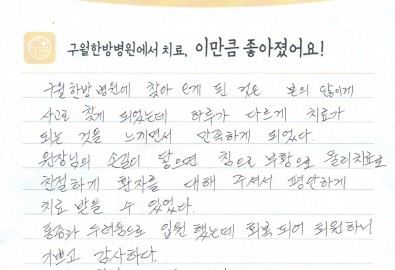 구월한방병원에서 치료, 이만큼 좋아졌어요!
구월한방병원에 찾아 오게 된 것은 본의 않이게
사고로 찾게 되었는데 하루가 다르게 치료가
되는 것을 느끼면서 만족하게 되었다.
원장님의 손길이 닿으면 침으로 부황으로 물리치료로
친절하게 환자를 대해 주셔서 평안하게
치료 받을 수 있었다.
통증과 두려움으로 입원 했는데 회복 되어 퇴원하니
기쁘고 감사하다.